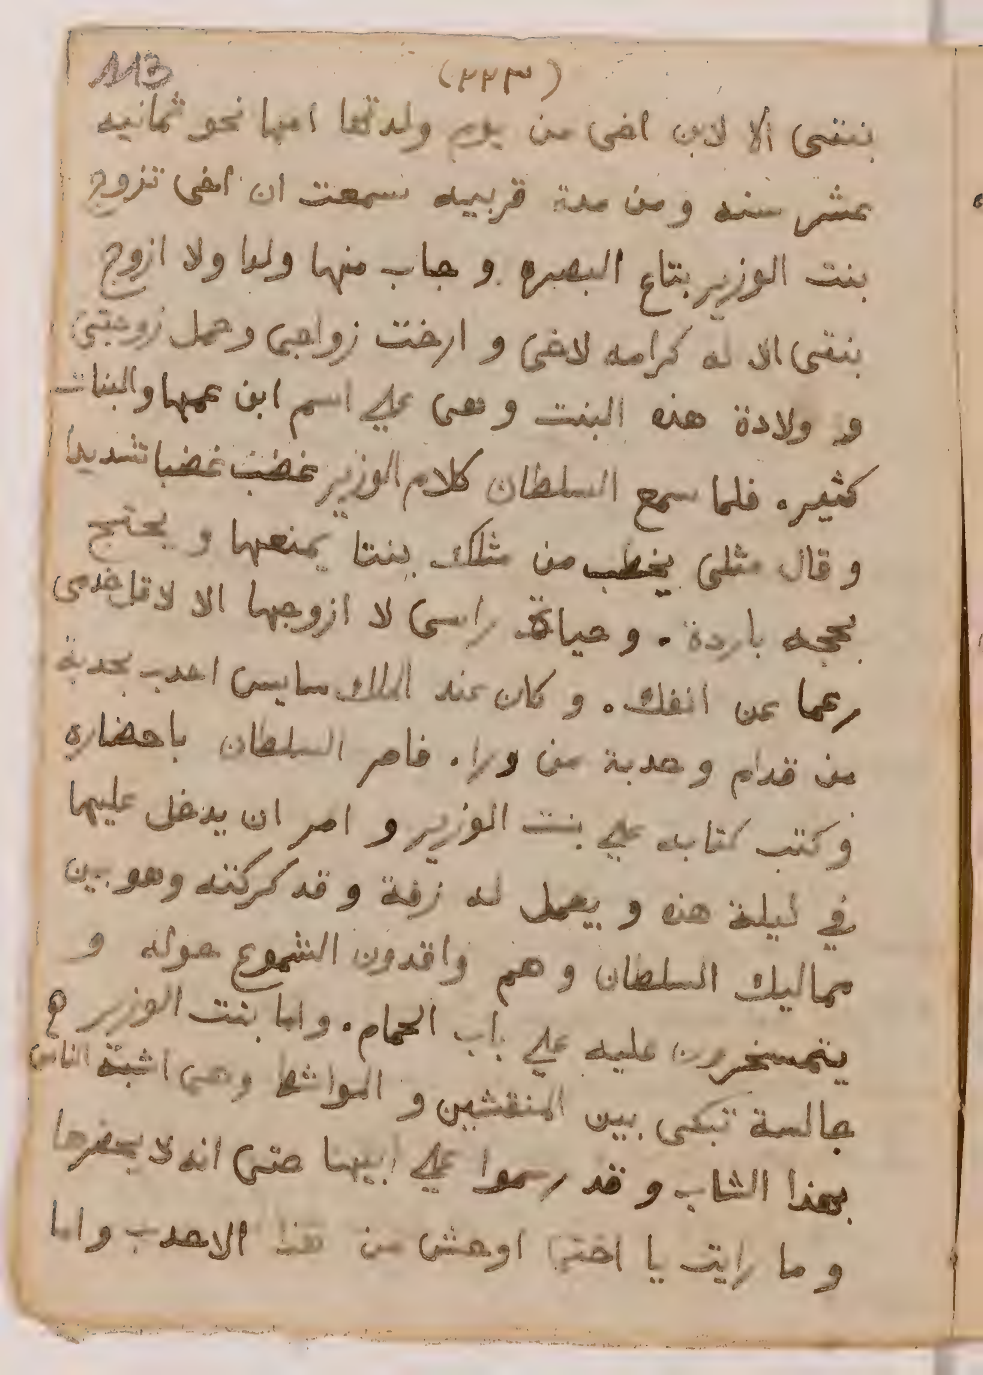 113
(٢٢٣)
بنتى الا لابن اخى من يوم ولدتها امها نحو ثمانيه
عشر سنه و من مدة قريبه سمعت ان اخى تزوج
بنت الوزير بتاع البصره و جاب منها ولدا ولا ازوج
بنتى الا له كرامه لاخى و ارخت زواجى وحمل زوجتى
و ولادة هذه البنت و هى على اسم ابن عمها والبنات
كثيره. فلما سمع السلطان كلام الوزير غضب غضبا شديدا
و قال مثلى يخطب من مثلك بنتا يمنعها و يحتج
بحجه باردة. و حياة راسى لا ازوجها الا لاقل خدمى
رغما عن انفك. و كان عند الملك سايس احدب بحدبة
من قدام و حدبة من ورا. فامر السلطان باحضاره
و كتب كتابه على بنت الوزير و امر ان يدخل عليها
في ليلة هذه و يعمل له زفة و قد كركته وهو بين
مماليك السلطان و هم واقدون الشموع حوله و
يتمسخرون عليه على باب الحمام. و اما بنت الوزير
جالسة تبكى بين المنقشين و المواشط وهى اشبة الناس
بهذا الشاب و قد رسموا على ابيها حتى انه لا يحضرها
و ما رايت يا اختى اوحش من هذا الاحدب و اما